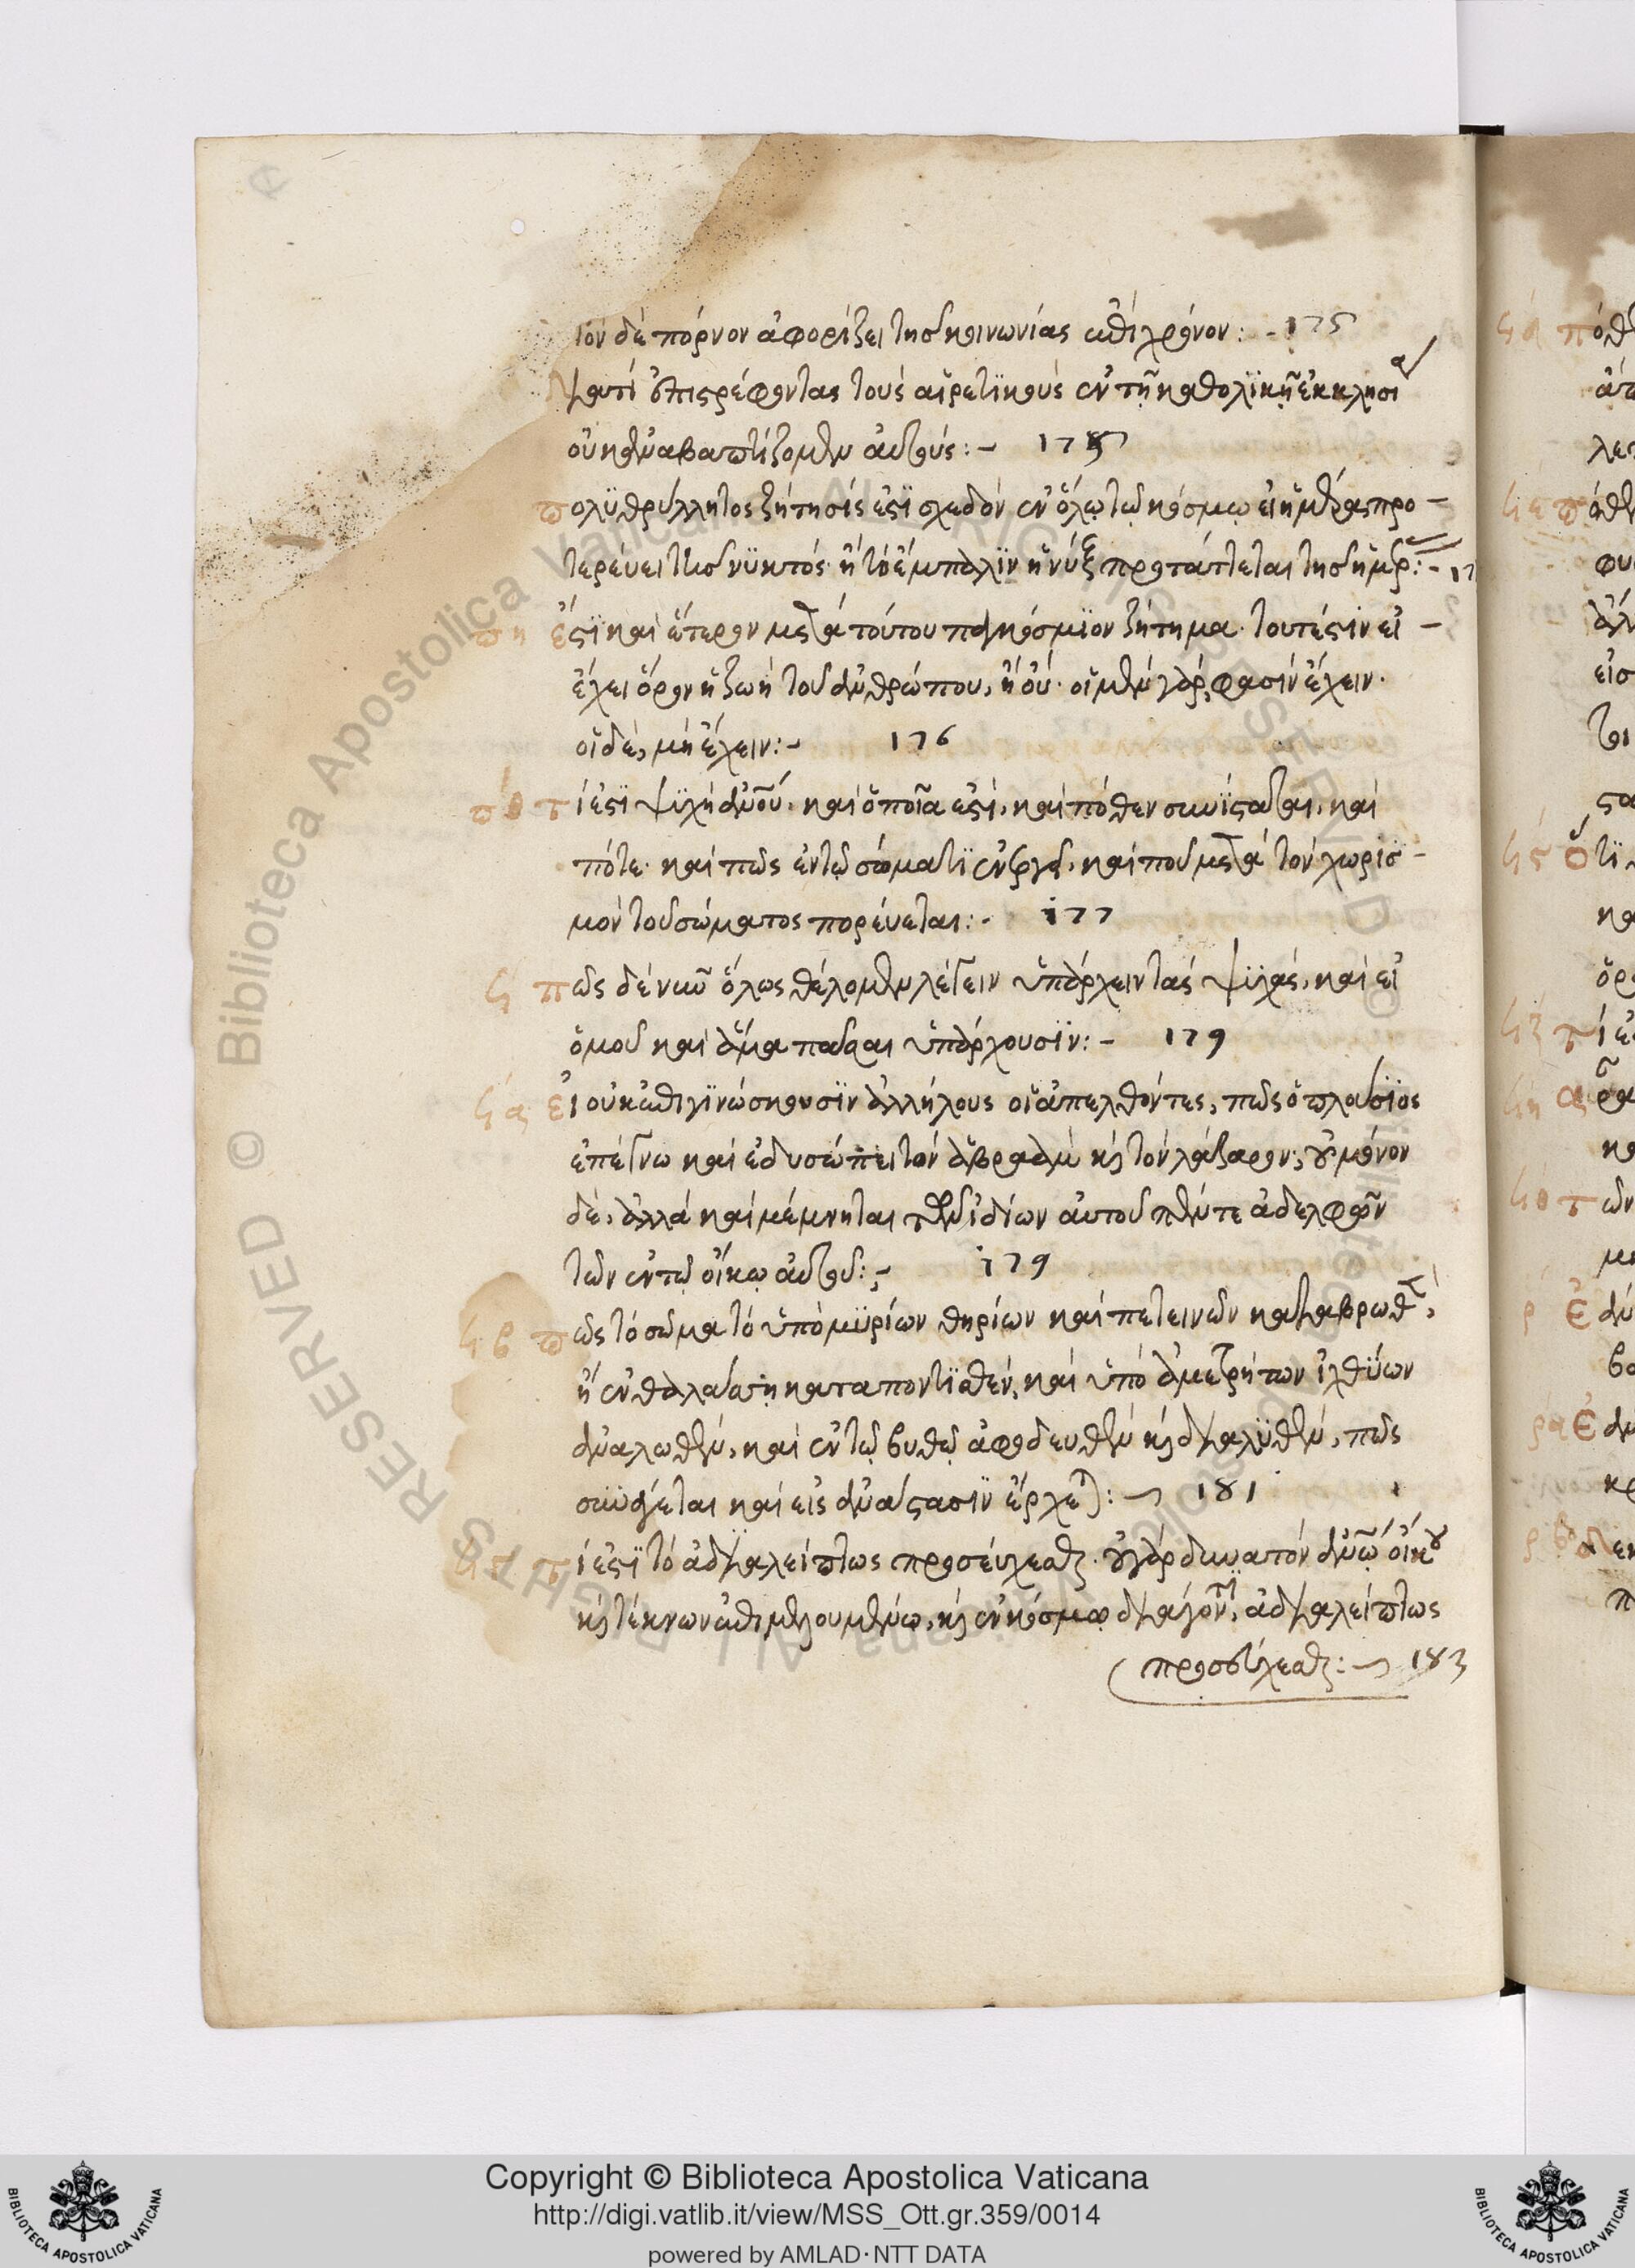 τὸν δὲ πόρνον ἀφορίζει τῆς κοινωνίας ἐπὶ χρόνον: - 175
Διατί ἐπιστρέφοντας τοὺς αἱρετικοὺς ἐν τῇ καθολικῇ ἐκκλησία
οὐκ ἀναβαπτίζομεν αὐτούς: -
πολυθρύλλητος ζήτησίς ἐστι σχεδὸν ἐν ὅλῳ τῷ κόσμῳ εἰ ἡ ἡμέρα προ -
τερεύει τῆς νυκτός· ἢ τὸ ἔμπαλιν ἡ νὺξ προτάττεται τῆς ἡμέρ: - 17
πη ἔστι καὶ ἕτερον μετὰ τούτου παγκόσμιον ζήτημα· τουτέστιν εἰ -
ἔχει ὅρον ἡ ζωὴ τοῦ ἀνθρώπου, ἢ οὔ· οἱ μὲν γάρ, φασὶν ἔχειν·
οἱ δὲ, μὴ ἔχειν: - 176
πθ τί ἐστι ψυχὴ ἀνου· καὶ ὁποία ἐστί, καὶ πόθεν συνίσταται, καὶ
πότε· καὶ πῶς ἐν τῷ σώματι ἐνεργεῖ, καὶ ποῦ μετὰ τὸν χωρισ -
μὸν τοῦ σώματος πορεύεται: - 177
ϟ πῶς δὲ νῦν ὅλως θέλομεν λέγειν ὑπάρχειν τὰς ψυχὰς, καὶ εἰ
ὁμοῦ καὶ ἅμα πᾶσαι ὑπάρχουσιν: - 179
ϟα εἰ οὐκ ἐπιγινώσκουσιν ἀλλήλους οἱ ἀπελθόντες, πῶς ὁ πλούσιος
ἐπέγνω καὶ ἐδυσώπει τὸν ἀβραὰμ κὶ τὸν λάζαρον; οὐ μόνον
δὲ, ἀλλὰ καὶ μέμνηται τῶν ἰδίων αὐτοῦ πέντε ἀδελφῶν
τῶν ἐν τῷ οἴκῳ αὐτοῦ: - 179
ϟβ πῶς τὸ σῶμα τὸ ὑπὸ μυρίων θηρίων καὶ πετεινῶν καταβρωθ,
ἢ ἐν θαλάσσῃ καταποντισθὲν, καὶ ὑπὸ ἀμετρήτων ἰχθύων
ἀναλωθὲν, καὶ ἐν τῷ βυθῷ ἀφοδευθὲν κὶ διαλυθὲν, πῶς
συνάγεται καὶ εἰς ἀνάστασιν ἔρχεται: - 181
ϟγ τί ἐστι τὸ ἀδιαλείπτως προσεύχεσθαι· οὐ γὰρ δυνατὸν ἀνω οἴκου
κὶ τέκνων ἐπιμελουμένω, κὶ ἐν κόσμω διάγοντι, ἀδιαλείπτως
προσεύχεσθαι: - 183
Copyright © Biblioteca Apostolica Vaticana
http://digi.vatlib.it/view/MSS_Ott.gr.359/0014
powered by AMLAD·NTT DATA